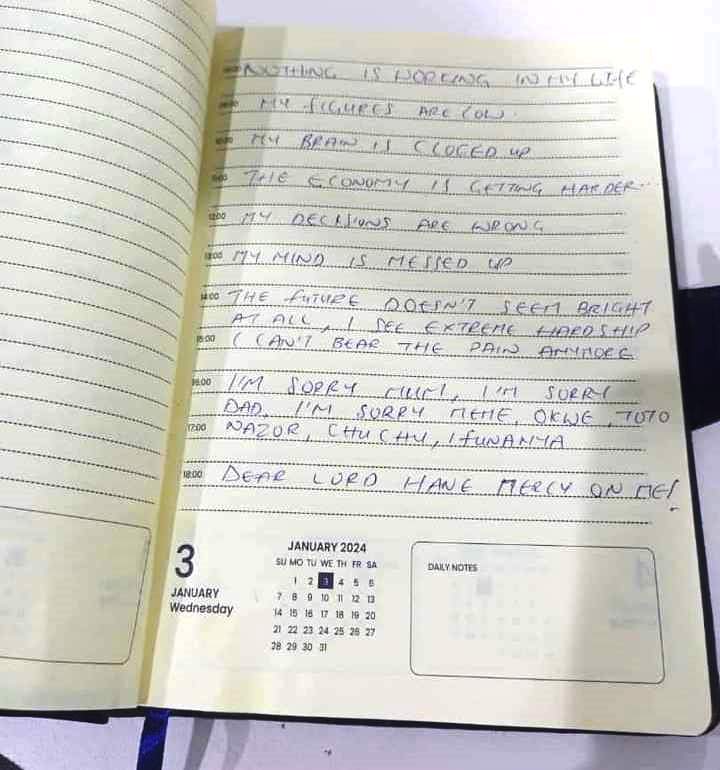 NOTHING IS WORKING IN MY LIFE
MY FIGURES ARE LOW.
10:00 MY BRAIN IS CLOGED UP
11:00 THE ECONOMY IS GETTING HARDER..
12:00 MY DECISIONS ARE WRONG
13:00 MY MIND IS MESSED UP
14:00 THE FUTURE DOESN'T SEEM BRIGHT
AT ALL, I SEE EXTREME HARDSHIP
15:00 I CAN'T BEAR THE PAIN ANYMORE
16:00 I'M SORRY MUM, I'M SORRY
DAD, I'M SORRY MEME, OKWE, TOTO
17:00 NAZOR, CHUCHU, IFUNANYA
18:00 DEAR LORD HAVE MERCY ON ME!
3
JANUARY
Wednesday
JANUARY 2024
SU MO TU WE TH FR SA
1 2 3 4 5 6
7 8 9 10 11 12 13
14 15 16 17 18 19 20
21 22 23 24 25 26 27
28 29 30 31
DAILY NOTES